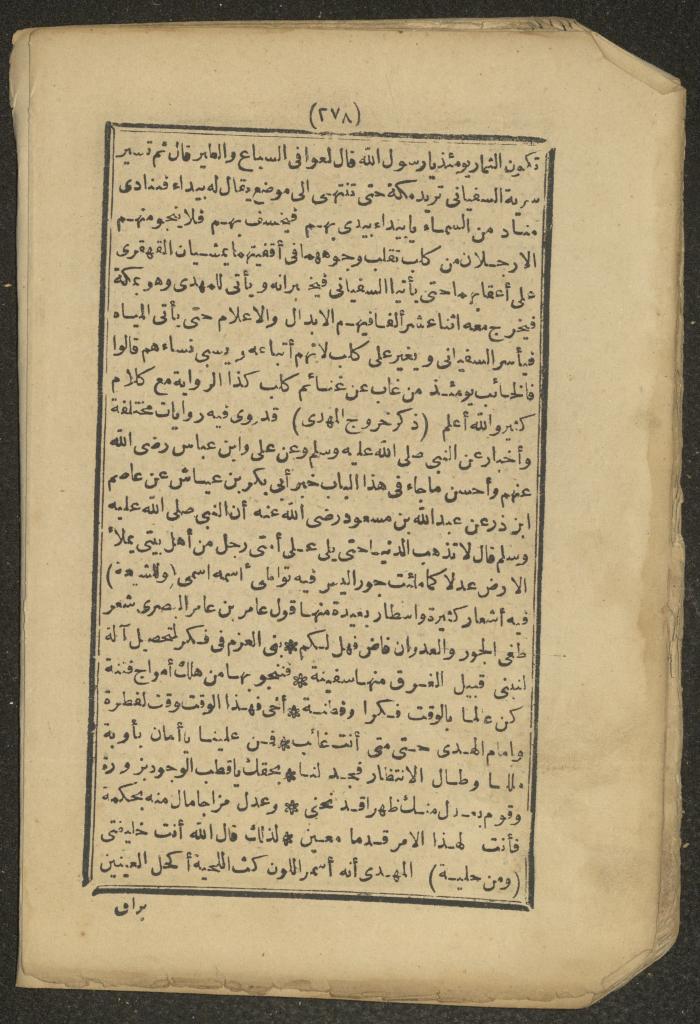 (٢٧٨)
تكون الثمار يومئذ يا رسول الله قال لعوافى السباع والطير قال ثم تسير
سرية السفيانى تريد مكة حتى تنتهى الى موضع يقال له بيداء فينادى
مناد من السماء يا بيداء بيدى بهم فيخسف بهم فلا ينجو منهم
الا رجلان من كلب تقلب وجوههما فى أقفيتهما يمشيان القهقرى
على أعقابهما حتى يأتيا السفيانى فيخبرانه ويأتى للمهدى وهو بمكة
فيخرج معه اثنا عشر ألفا فيهم الابدال والاعلام حتى يأتى المياه
فيأسر السفيانى ويغير على كلب لانهم أتباعه ويسبى نساءهم قالوا
فالخائب يومئذ من غاب عن غنائم كلب كذا الرواية مع كلام
كثير والله أعلم (ذكر خروج المهدى) قد روى فيه روايات مختلفة
وأخبار عن النبى صلى الله عليه وسلم وعن على وابن عباس رضى الله
عنهم وأحسن ما جاء فى هذا الباب خبر أبى بكر بن عياش عن عاصم
ابن ذر عن عبد الله بن مسعود رضى الله عنه أن النبى صلى الله عليه
وسلم قال لا تذهب الدنيا حتى يلى على أمتى رجل من أهل بيتى يملأ
الارض عدلا كما ملئت جورا ليس فيه تواطى اسمه اسمى (وللشيعة)
فيه أشعار كثيرة واسطار بعيدة منها قول عامر بن عامر البصرى شعر
طغى الجور والعدوان فاض فهل لكم * بنى العزم فى فكر لتحصيل آلة
لنبنى قبيل الغرق منها سفينة * فننجو بها من هلك أمواج فتنة
كن عالما بالوقت فكرا وفطنة * أخى فهذا الوقت وقت لفطرة
وامام الهدى حتى متى أنت غائب * فمن علينا يا أمان بأوبة
مللنا وطال الانتظار فجد لنا * بحقك يا قطب الوجود بزورة
وقوم بعدل منك ظهرا قد نحنى * وعدل مزاجا مال منه بحكمة
فأنت لهذا الامر قدما معين * لذلك قال الله أنت خليفتى
(ومن حلية) المهدى أنه أسمر اللون كث اللحية أكحل العينين
براق